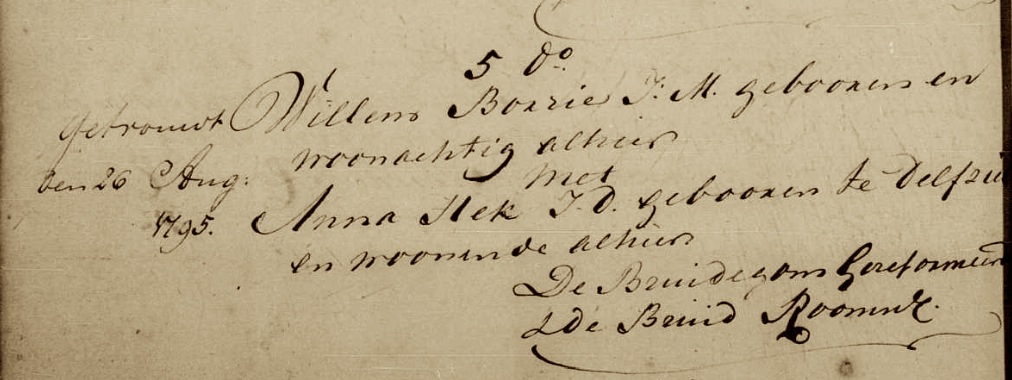 5 do.
getrouwt Willem Borrie J: M. gebooren en
den 26 Aug: woonachtig alhier
met
1795. Anna Hek J. D. gebooren te Delfzil
en woonende alhier
De Bruidegom Gereformeerd
& de Bruid Roomsch.